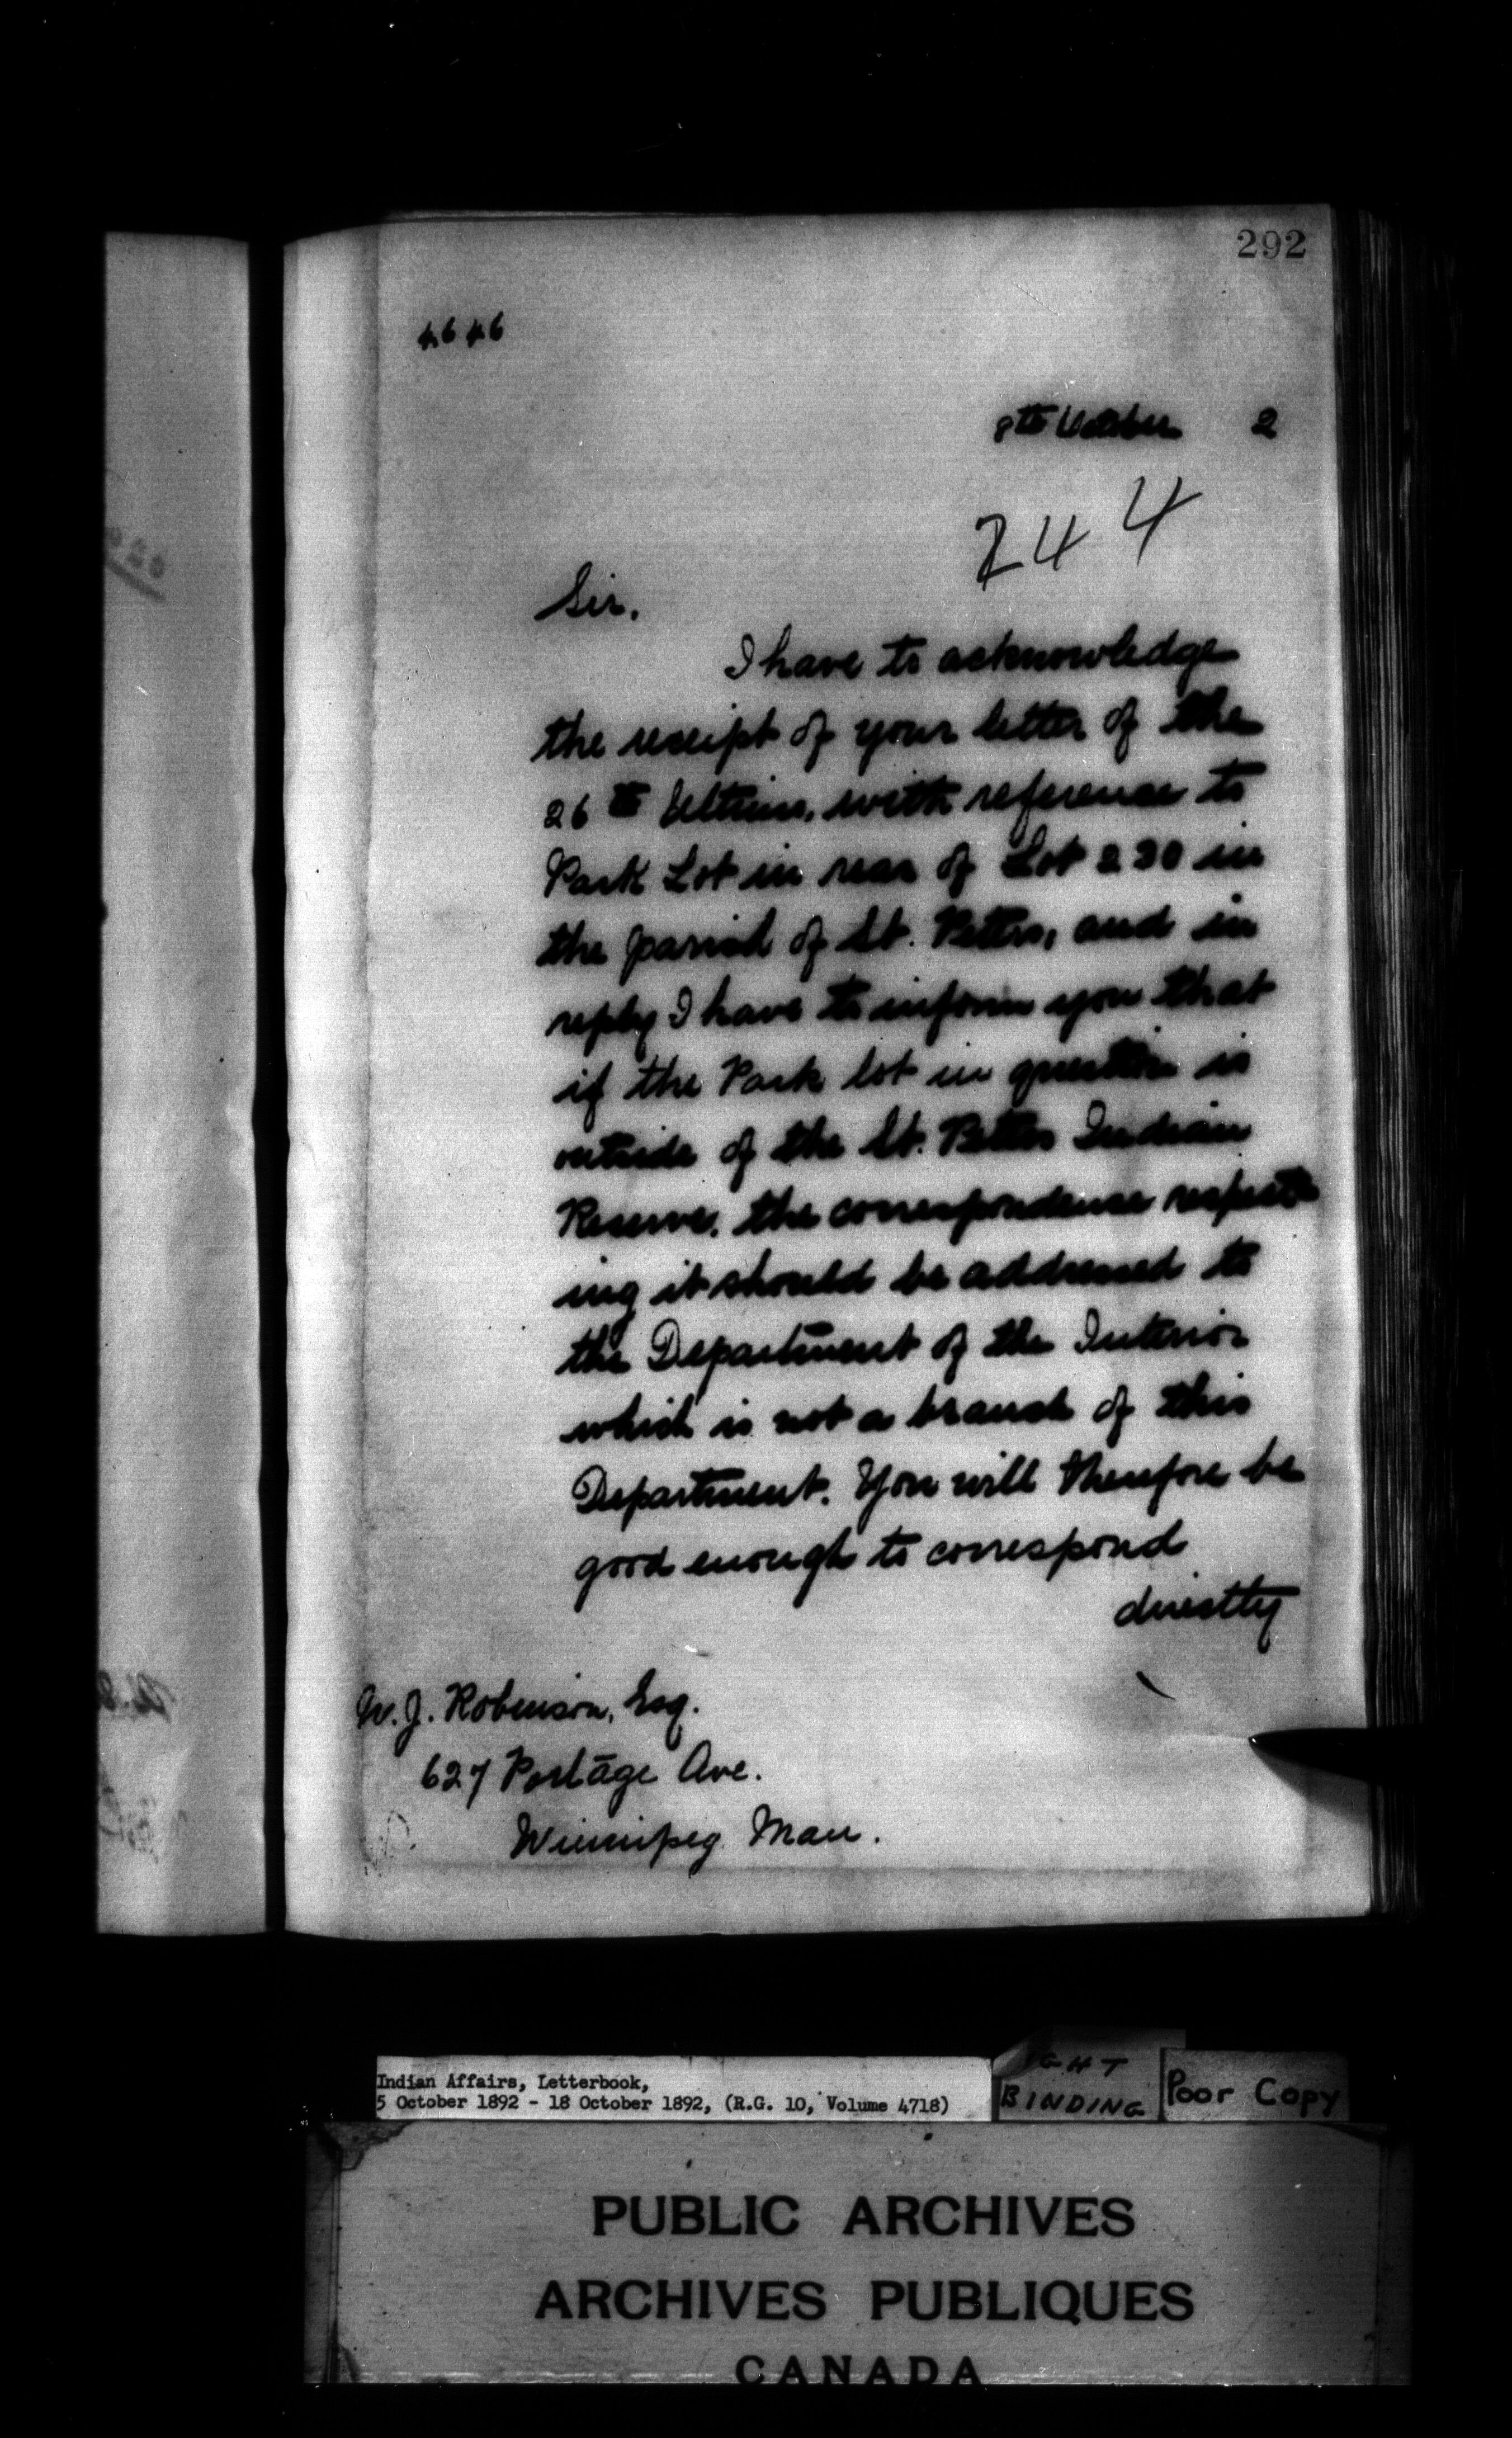 292
4646
8th October 2
244
Sir,
I have to acknowledge
the receipt of your letter of the
26th Ultimo, with reference to
Park Lot in rear of Lot 230 in
the parish of St. Peters, and in
reply I have to inform you that
if the Park lot in question is
outside of the St. Peters Indian
Reserve, the correspondence respect-
ing it should be addressed to
the Department of the Interior
which is not a branch of this
Department. You will therefore be
good enough to correspond
directly
W. J. Robinson, Esq.
627 Portage Ave.
Winnipeg Man.
Indian Affairs, Letterbook,
5 October 1892 - 18 October 1892, (R.G. 10, Volume 4718)
BINDING
Poor Copy
PUBLIC ARCHIVES
ARCHIVES PUBLIQUES
CANADA